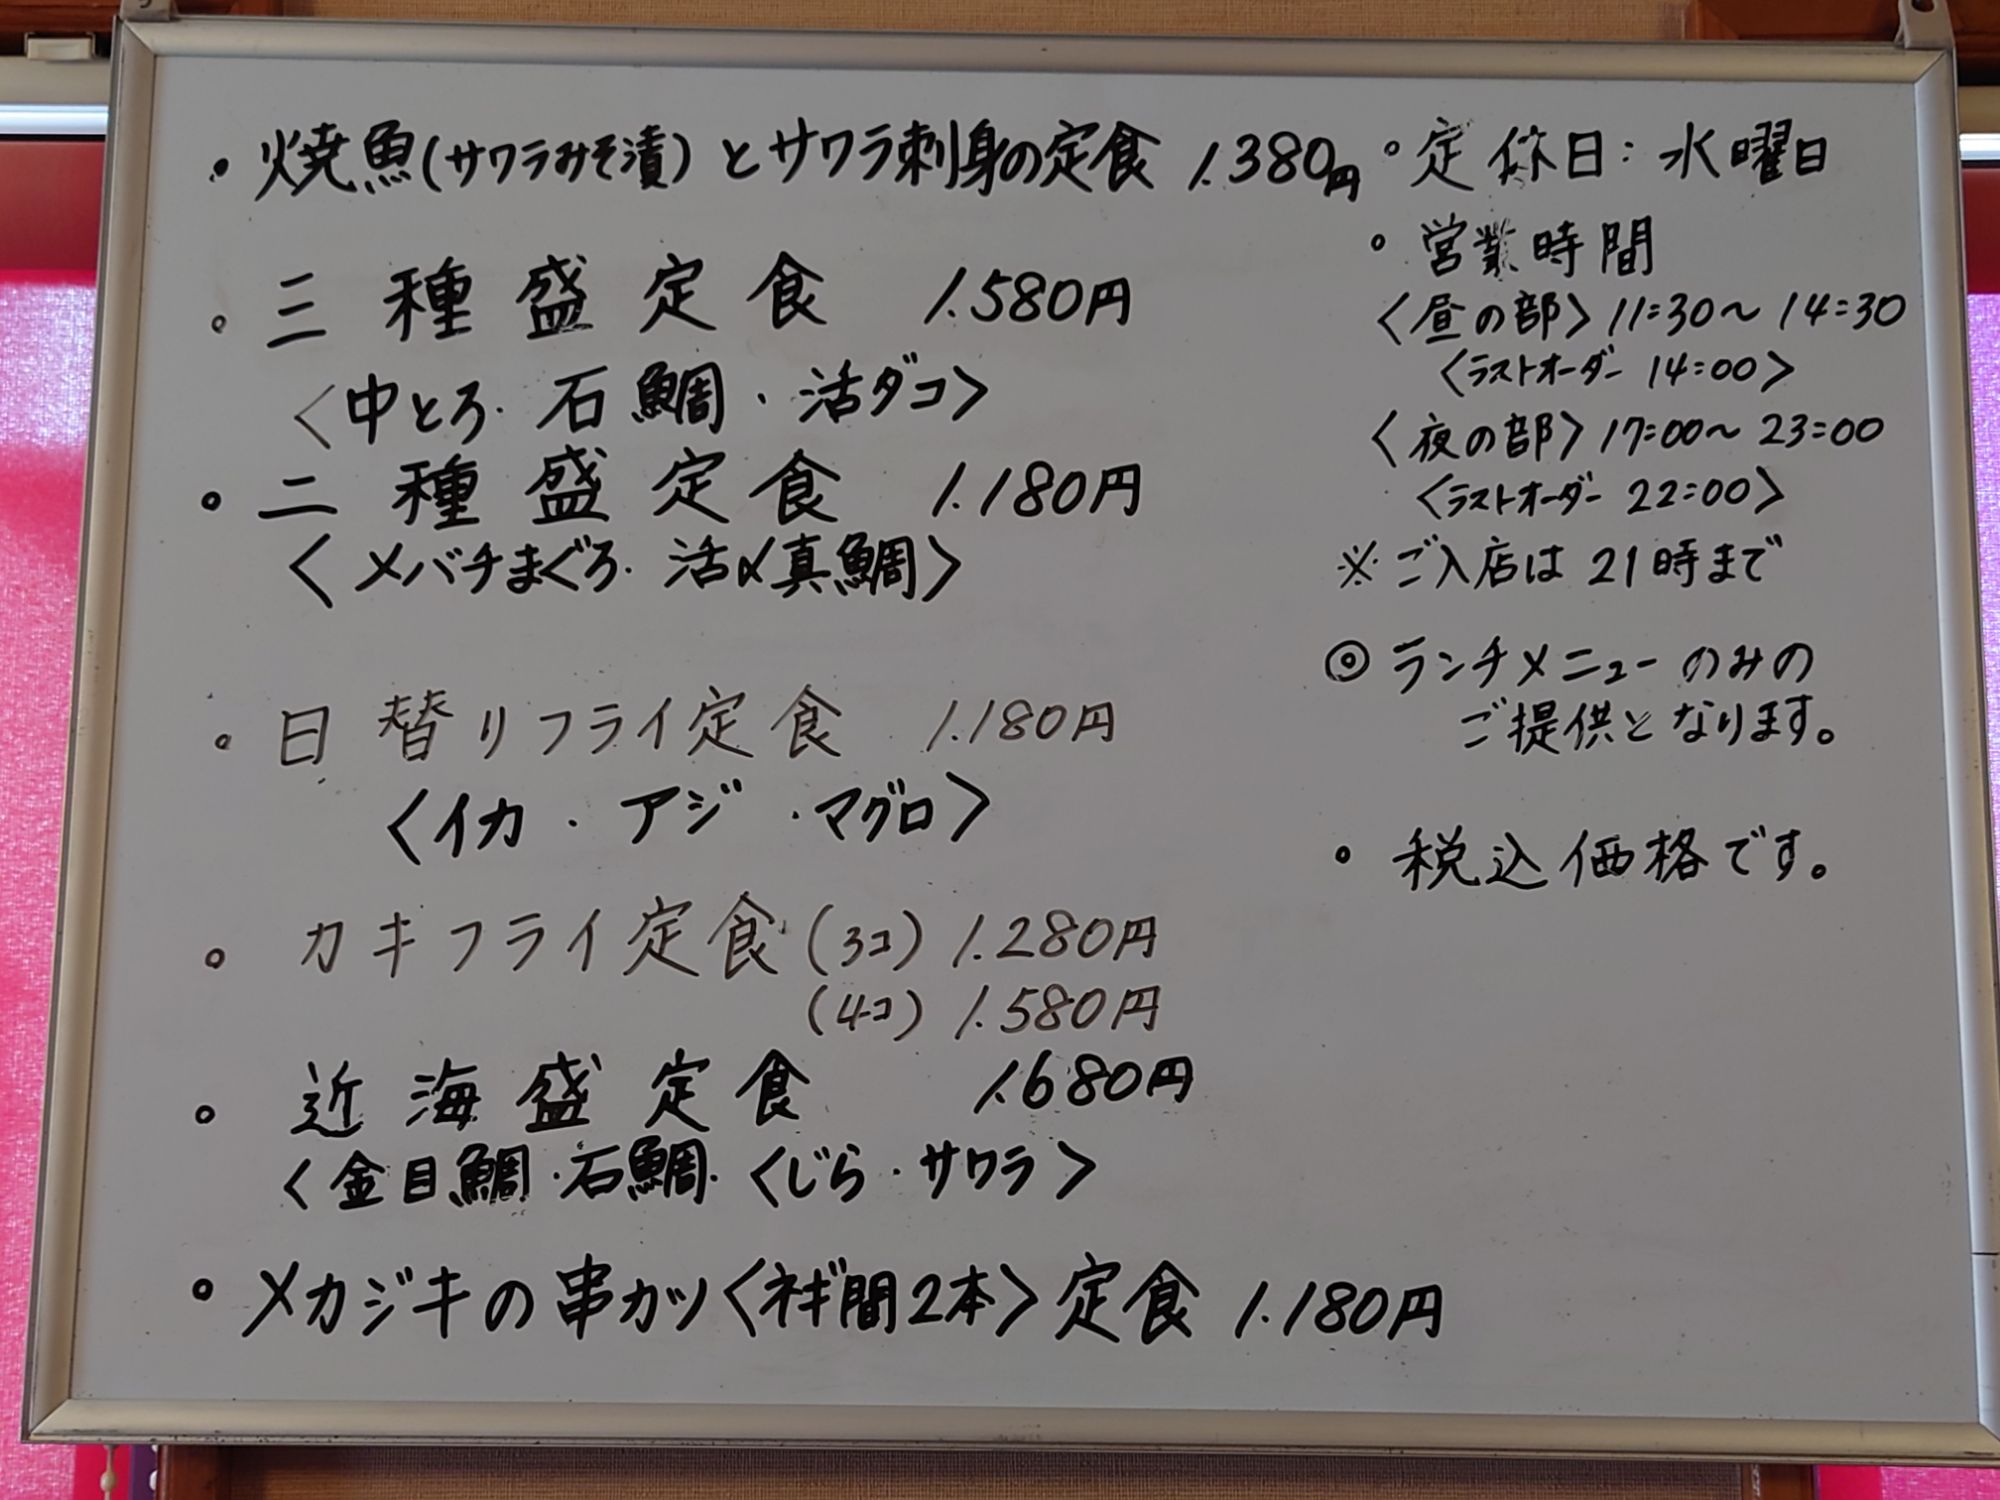 ・焼魚(サワラみそ漬)とサワラ刺身の定食 1.380円
。三種盛定食 1.580円
〈中とろ・石鯛・活ダコ〉
。二種盛定食 1.180円
〈メバチまぐろ・活〆真鯛〉
。日替りフライ定食 1.180円
〈イカ・アジ・マグロ〉
。カキフライ定食(3コ) 1.280円
(4コ) 1.580円
。近海盛定食 1.680円
〈金目鯛・石鯛・くじら・サワラ〉
。メカジキの串カツ〈ネギ間2本〉定食 1.180円
。定休日:水曜日
。営業時間
〈昼の部〉11:30〜14:30
〈ラストオーダー 14:00〉
〈夜の部〉17:00〜23:00
〈ラストオーダー 22:00〉
※ご入店は21時まで
◎ランチメニューのみの
ご提供となります。
。税込価格です。